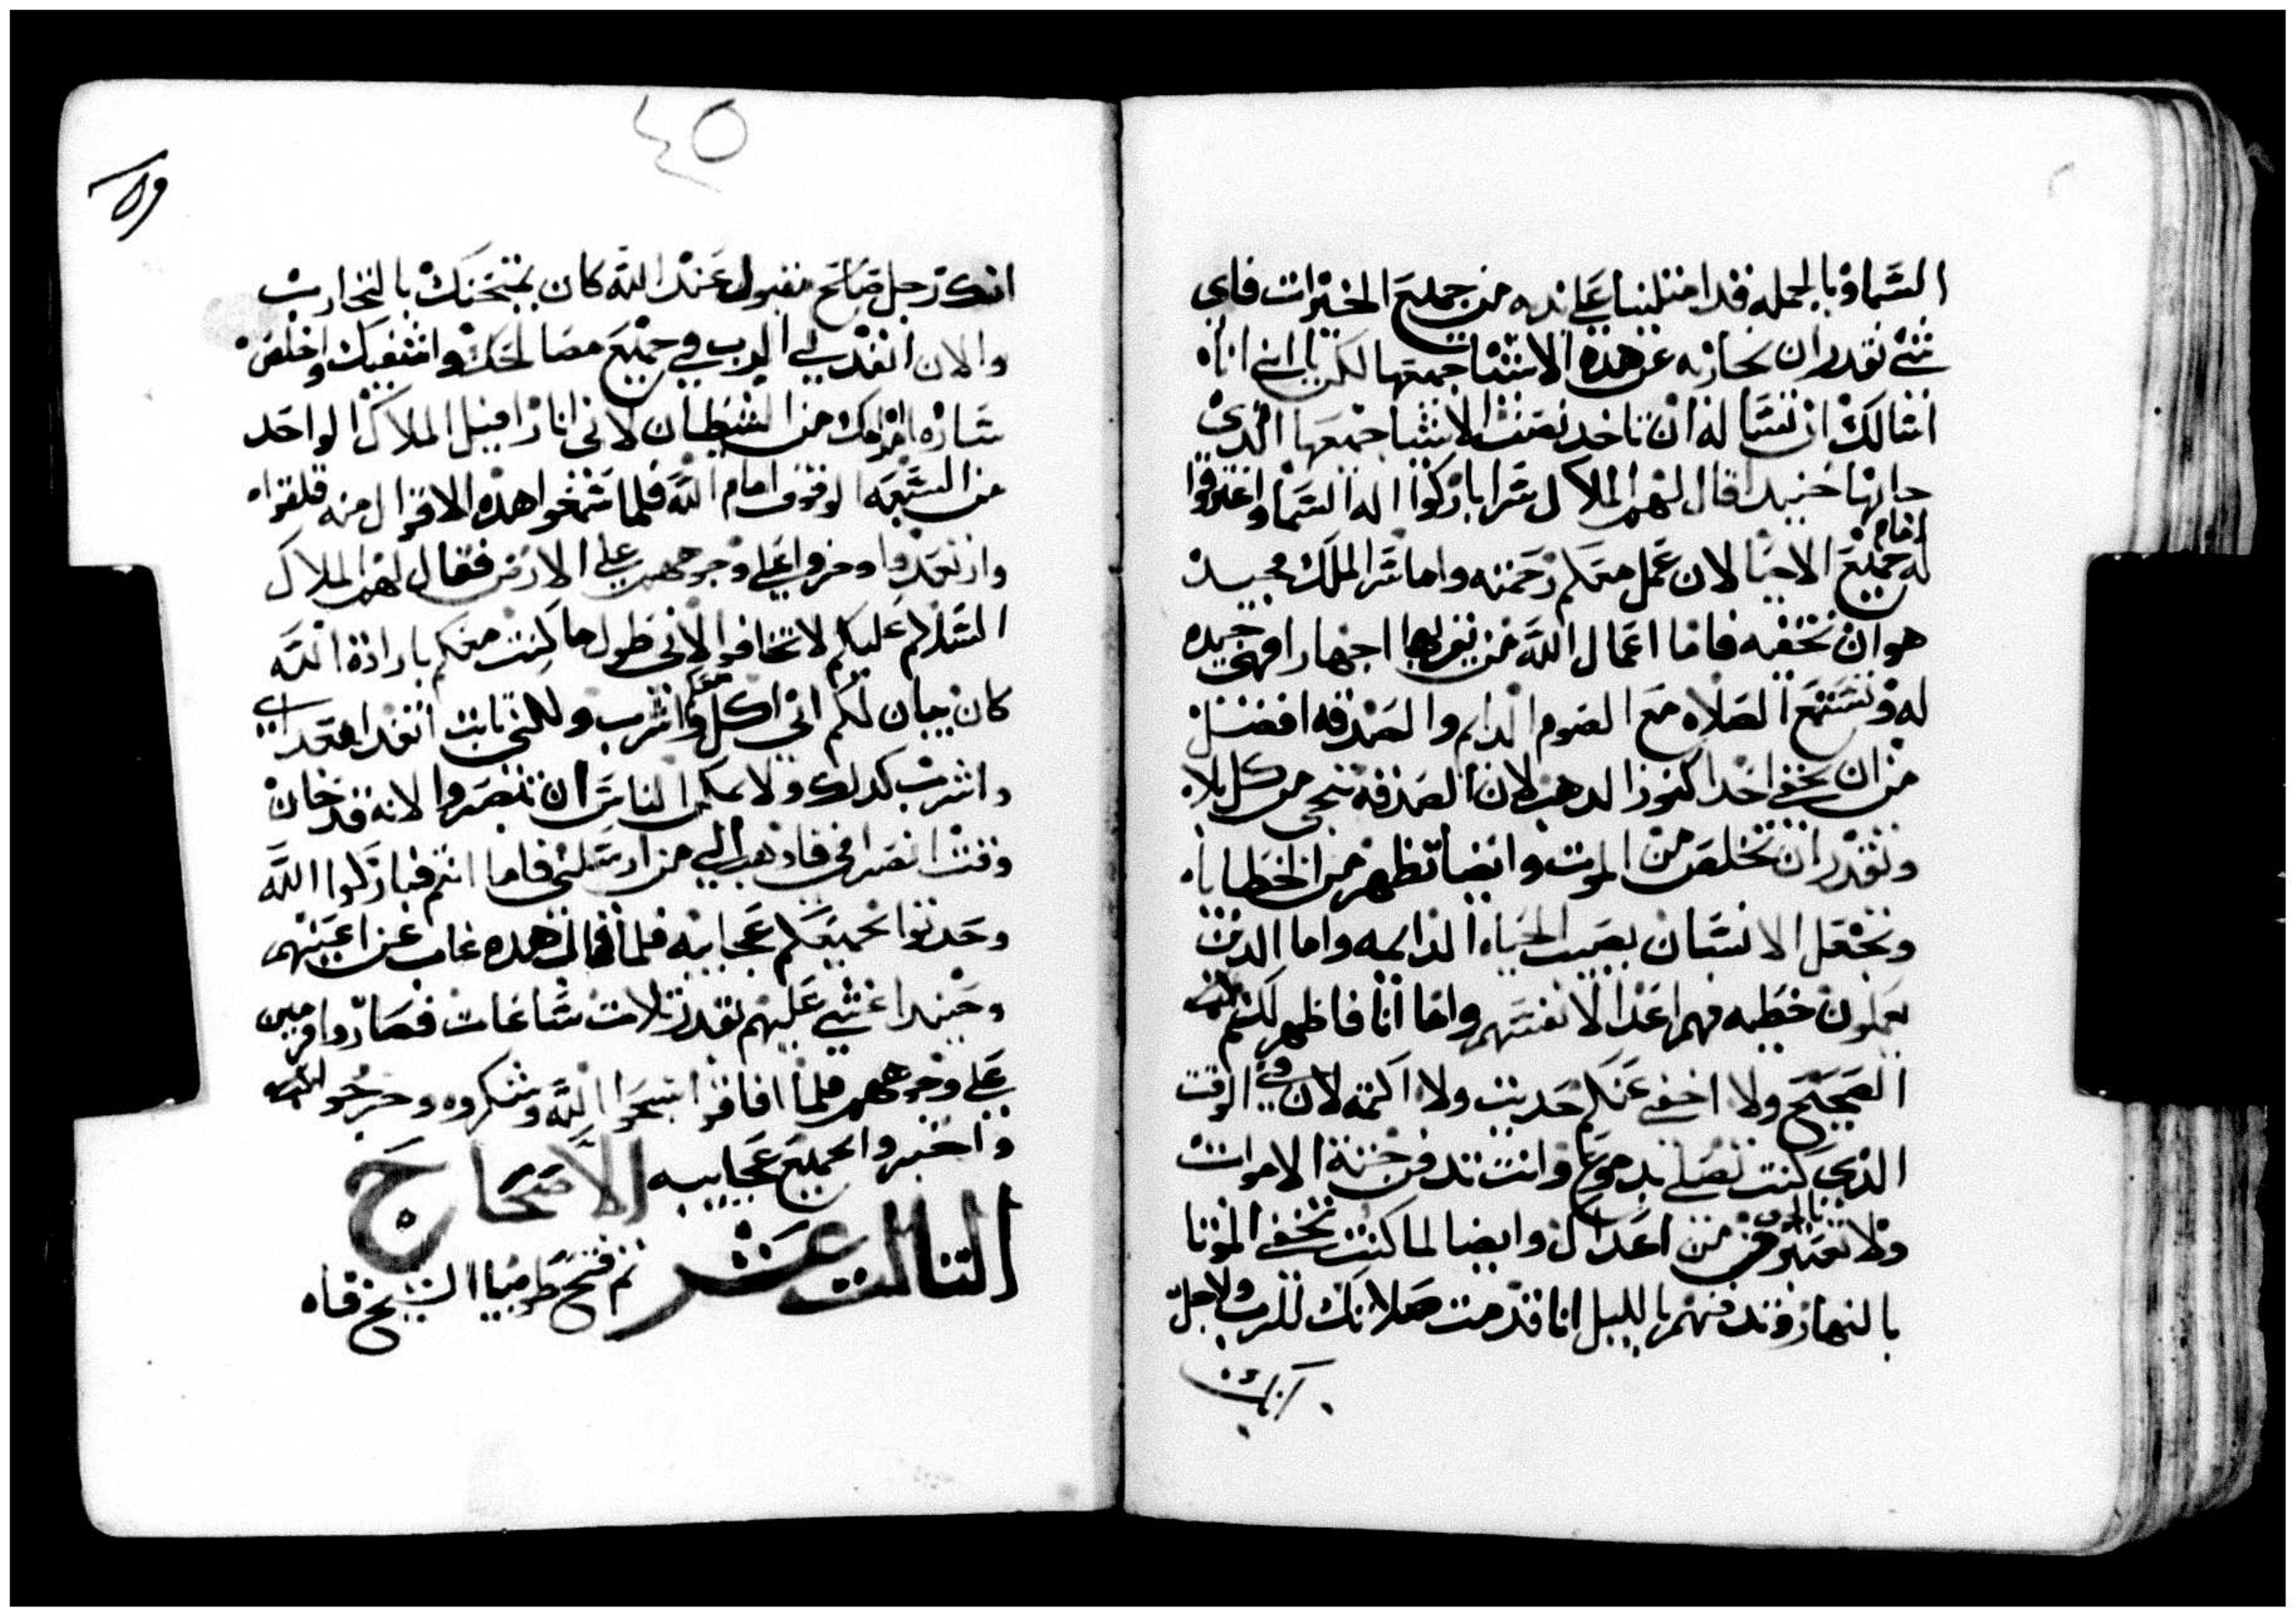 السما وبالجمله قد امتلينا علي يديه من جميع الخيرات فاي
شي نقدر ان نجازيه عن هذه الاشيا جميعها لكن يا ابي انا
اسالك ان تساله ان ياخد نصف الاشيا جميعها الذي
جابها حنيدا قال لهم الملاك سرا باركوا اله السما واعترفوا
له امام جميع الاحيا لان عمل معكم رحمته واما سر الملك فجيد
هو ان نخفيه فاما اعمال الله من يقربها اجهارا فهي جيده
له وتستنفع الصلاه مع الصوم الدايم والصدقه افضل
من ان يخفي احدا كنوز الدهب لان الصدقه تنجي من كل بلا
وتقدر ان تخلص من الموت وايضا تطهر من الخطايا
وتجعل الانسان يصيب الحياه الدايمه واما الدين
يعملون خطيه فهم اعدا لانفسهم واما انا فاظهر لكم
الصحيح ولا اخفي عنكم حديث ولا اكتمه لان في الوقت
الذي كنت تصلي بدموع وانت تدفن جثة الاموات
ولا تعتبر من اعدال وايضا لما كنت تخفي الموتا
بالنهار وتدفنهم بالليل انا قدمت صلاتك للرب ولاجل
انك
٤٥
انك رجل صالح مقبول عند الله كان يمتحنك بالتجارب
والان انفدني الرب في جميع مصالحك واشفيك واخلص
ساره امراتك من الشيطان لاني انا رافييل الملاك الواحد
من السبعه الوقوف امام الله فلما سمعوا هذه الاقوال منه قلقوا
وارتعدوا وخروا علي وجوههم علي الارض فقال لهم الملاك
السلام عليكم لا تخافوا لاني طول ما كنت معكم بارادة الله
كان يبان لكم اني اكل معكم واشرب ولكني ثابت اتغدا بغدا
واشرب كدلك ولا يمكن الناس ان تنصروا لانه قد حان
وقت انصرافي فاذهب الي من ارسلني فاما انتم فباركوا الله
وحدثوا بجميع عجايبه فلما قال هذه غاب عن اعينهم
وحنيدا غشي عليهم نقدر ثلاث ساعات فصاروا مرميين
علي وجوههم فلما افاقوا سبحوا الله وشكروه وخرجوا
واخبروا بجميع عجايبه الاصحاح
الثالث عشر ثم فتح طوبيا الشيخ فاه